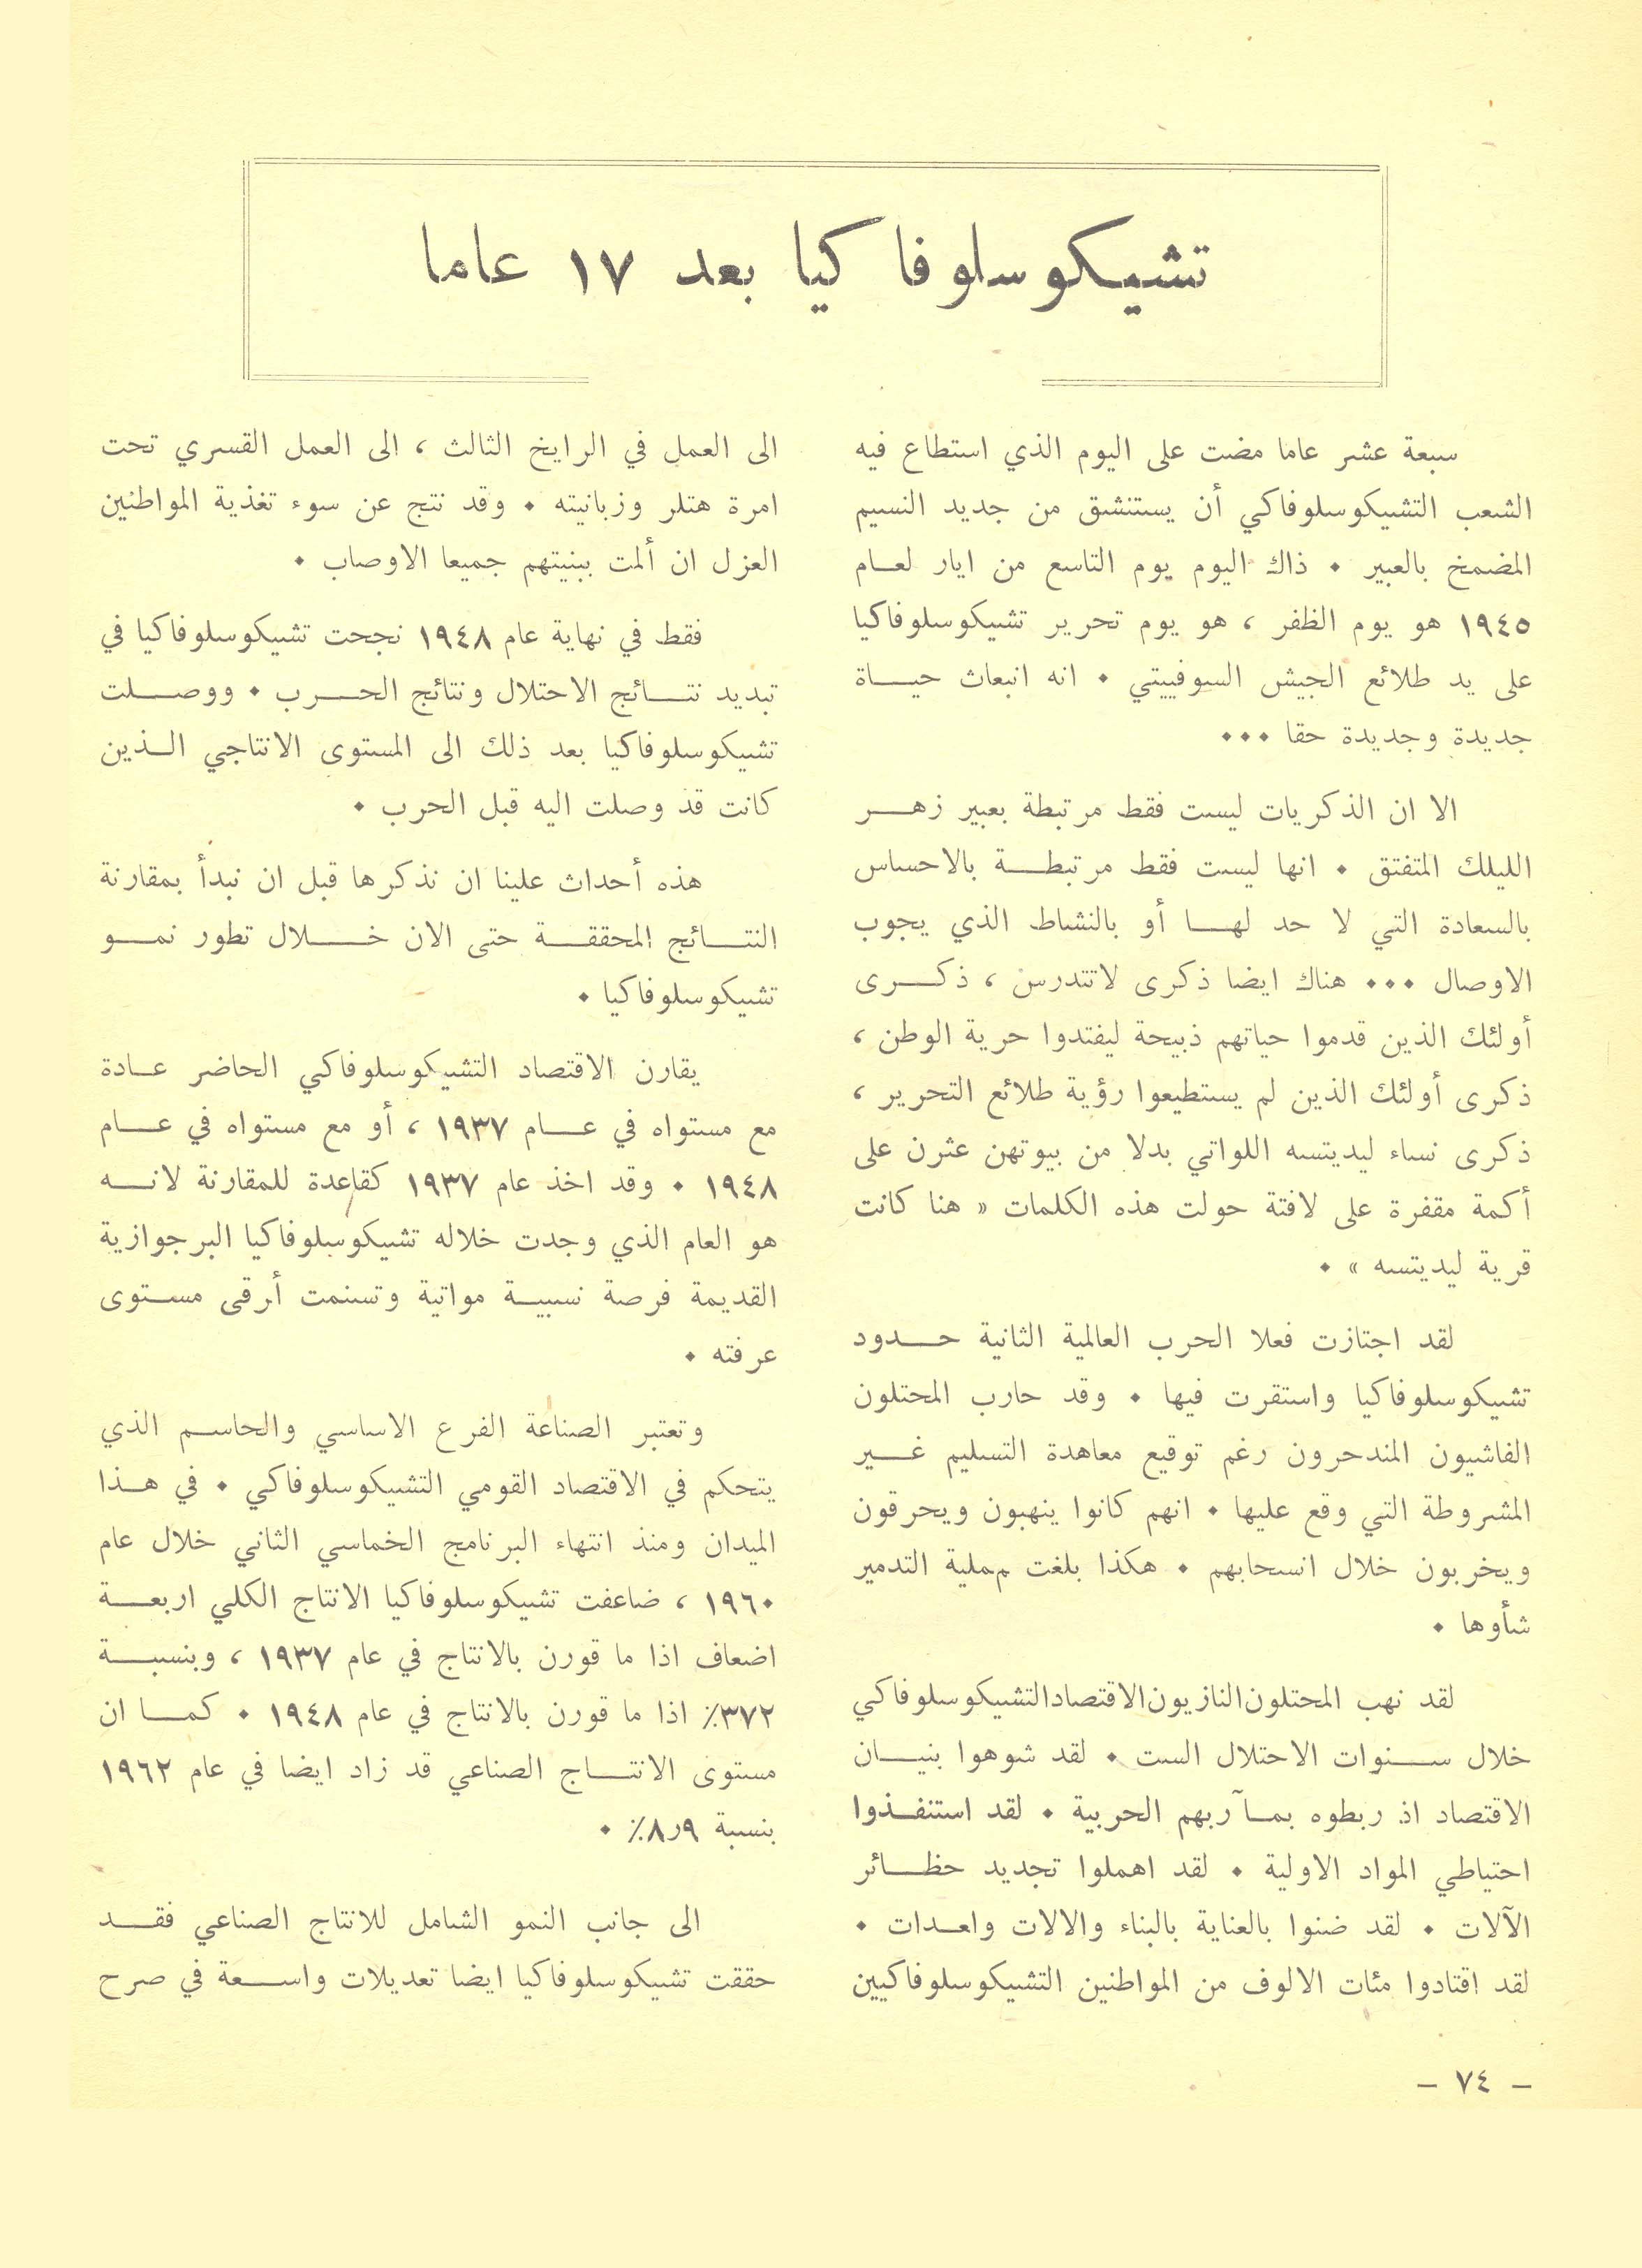 تشيكوسلوفاكيا بعد ١٧ عاما
سبعة عشر عاما مضت على اليوم الذي استطاع فيه
الشعب التشيكوسلوفاكي أن يستنشق من جديد النسيم
المضمخ بالعبير • ذاك اليوم يوم التاسع من ايار لعام
١٩٤٥ هو يوم الظفر ، هو يوم تحرير تشيكوسلوفاكيا
على يد طلائع الجيش السوفييتي • انه انبعاث حياة
جديدة وجديدة حقا •••
الا ان الذكريات ليست فقط مرتبطة بعبير زهر
الليلك المتفتق • انها ليست فقط مرتبطة بالاحساس
بالسعادة التي لا حد لها أو بالنشاط الذي يجوب
الاوصال ••• هناك ايضا ذكرى لاتندرس ، ذكرى
أولئك الذين قدموا حياتهم ذبيحة ليفتدوا حرية الوطن ،
ذكرى أولئك الذين لم يستطيعوا رؤية طلائع التحرير ،
ذكرى نساء ليديتسه اللواتي بدلا من بيوتهن عثرن على
أكمة مقفرة على لافتة حولت هذه الكلمات « هنا كانت
قرية ليديتسه » •
لقد اجتازت فعلا الحرب العالمية الثانية حدود
تشيكوسلوفاكيا واستقرت فيها • وقد حارب المحتلون
الفاشيون المندحرون رغم توقيع معاهدة التسليم غير
المشروطة التي وقع عليها • انهم كانوا ينهبون ويحرقون
ويخربون خلال انسحابهم • هكذا بلغت عملية التدمير
شأوها •
لقد نهب المحتلون النازيون الاقتصاد التشيكوسلوفاكي
خلال سنوات الاحتلال الست • لقد شوهوا بنيان
الاقتصاد اذ ربطوه بمآربهم الحربية • لقد استنفذوا
احتياطي المواد الاولية • لقد اهملوا تجديد حظائر
الآلات • لقد ضنوا بالعناية بالبناء والالات واعدات •
لقد اقتادوا مئات الالوف من المواطنين التشيكوسلوفاكيين
الى العمل في الرايخ الثالث ، الى العمل القسري تحت
امرة هتلر وزبانيته • وقد نتج عن سوء تغذية المواطنين
العزل ان ألمت ببنيتهم جميعا الاوصاب •
فقط في نهاية عام ١٩٤٨ نجحت تشيكوسلوفاكيا في
تبديد نتائج الاحتلال ونتائج الحرب • ووصلت
تشيكوسلوفاكيا بعد ذلك الى المستوى الانتاجي الذين
كانت قد وصلت اليه قبل الحرب •
هذه أحداث علينا ان نذكرها قبل ان نبدأ بمقارنة
النتائج المحققة حتى الان خلال تطور نمو
تشيكوسلوفاكيا •
يقارن الاقتصاد التشيكوسلوفاكي الحاضر عادة
مع مستواه في عام ١٩٣٧ ، أو مع مستواه في عام
١٩٤٨ • وقد اخذ عام ١٩٣٧ كقاعدة للمقارنة لانه
هو العام الذي وجدت خلاله تشيكوسلوفاكيا البرجوازية
القديمة فرصة نسبية مواتية وتسنمت أرقى مستوى
عرفته •
وتعتبر الصناعة الفرع الاساسي والحاسم الذي
يتحكم في الاقتصاد القومي التشيكوسلوفاكي • في هذا
الميدان ومنذ انتهاء البرنامج الخماسي الثاني خلال عام
١٩٦٠ ، ضاعفت تشيكوسلوفاكيا الانتاج الكلي اربعة
اضعاف اذا ما قورن بالانتاج في عام ١٩٣٧ ، وبنسبة
٣٧٢٪ اذا ما قورن بالانتاج في عام ١٩٤٨ • كما ان
مستوى الانتاج الصناعي قد زاد ايضا في عام ١٩٦٢
بنسبة ٨ر٩٪ •
الى جانب النمو الشامل للانتاج الصناعي فقد
حققت تشيكوسلوفاكيا ايضا تعديلات واسعة في صرح
– ٧٤ –